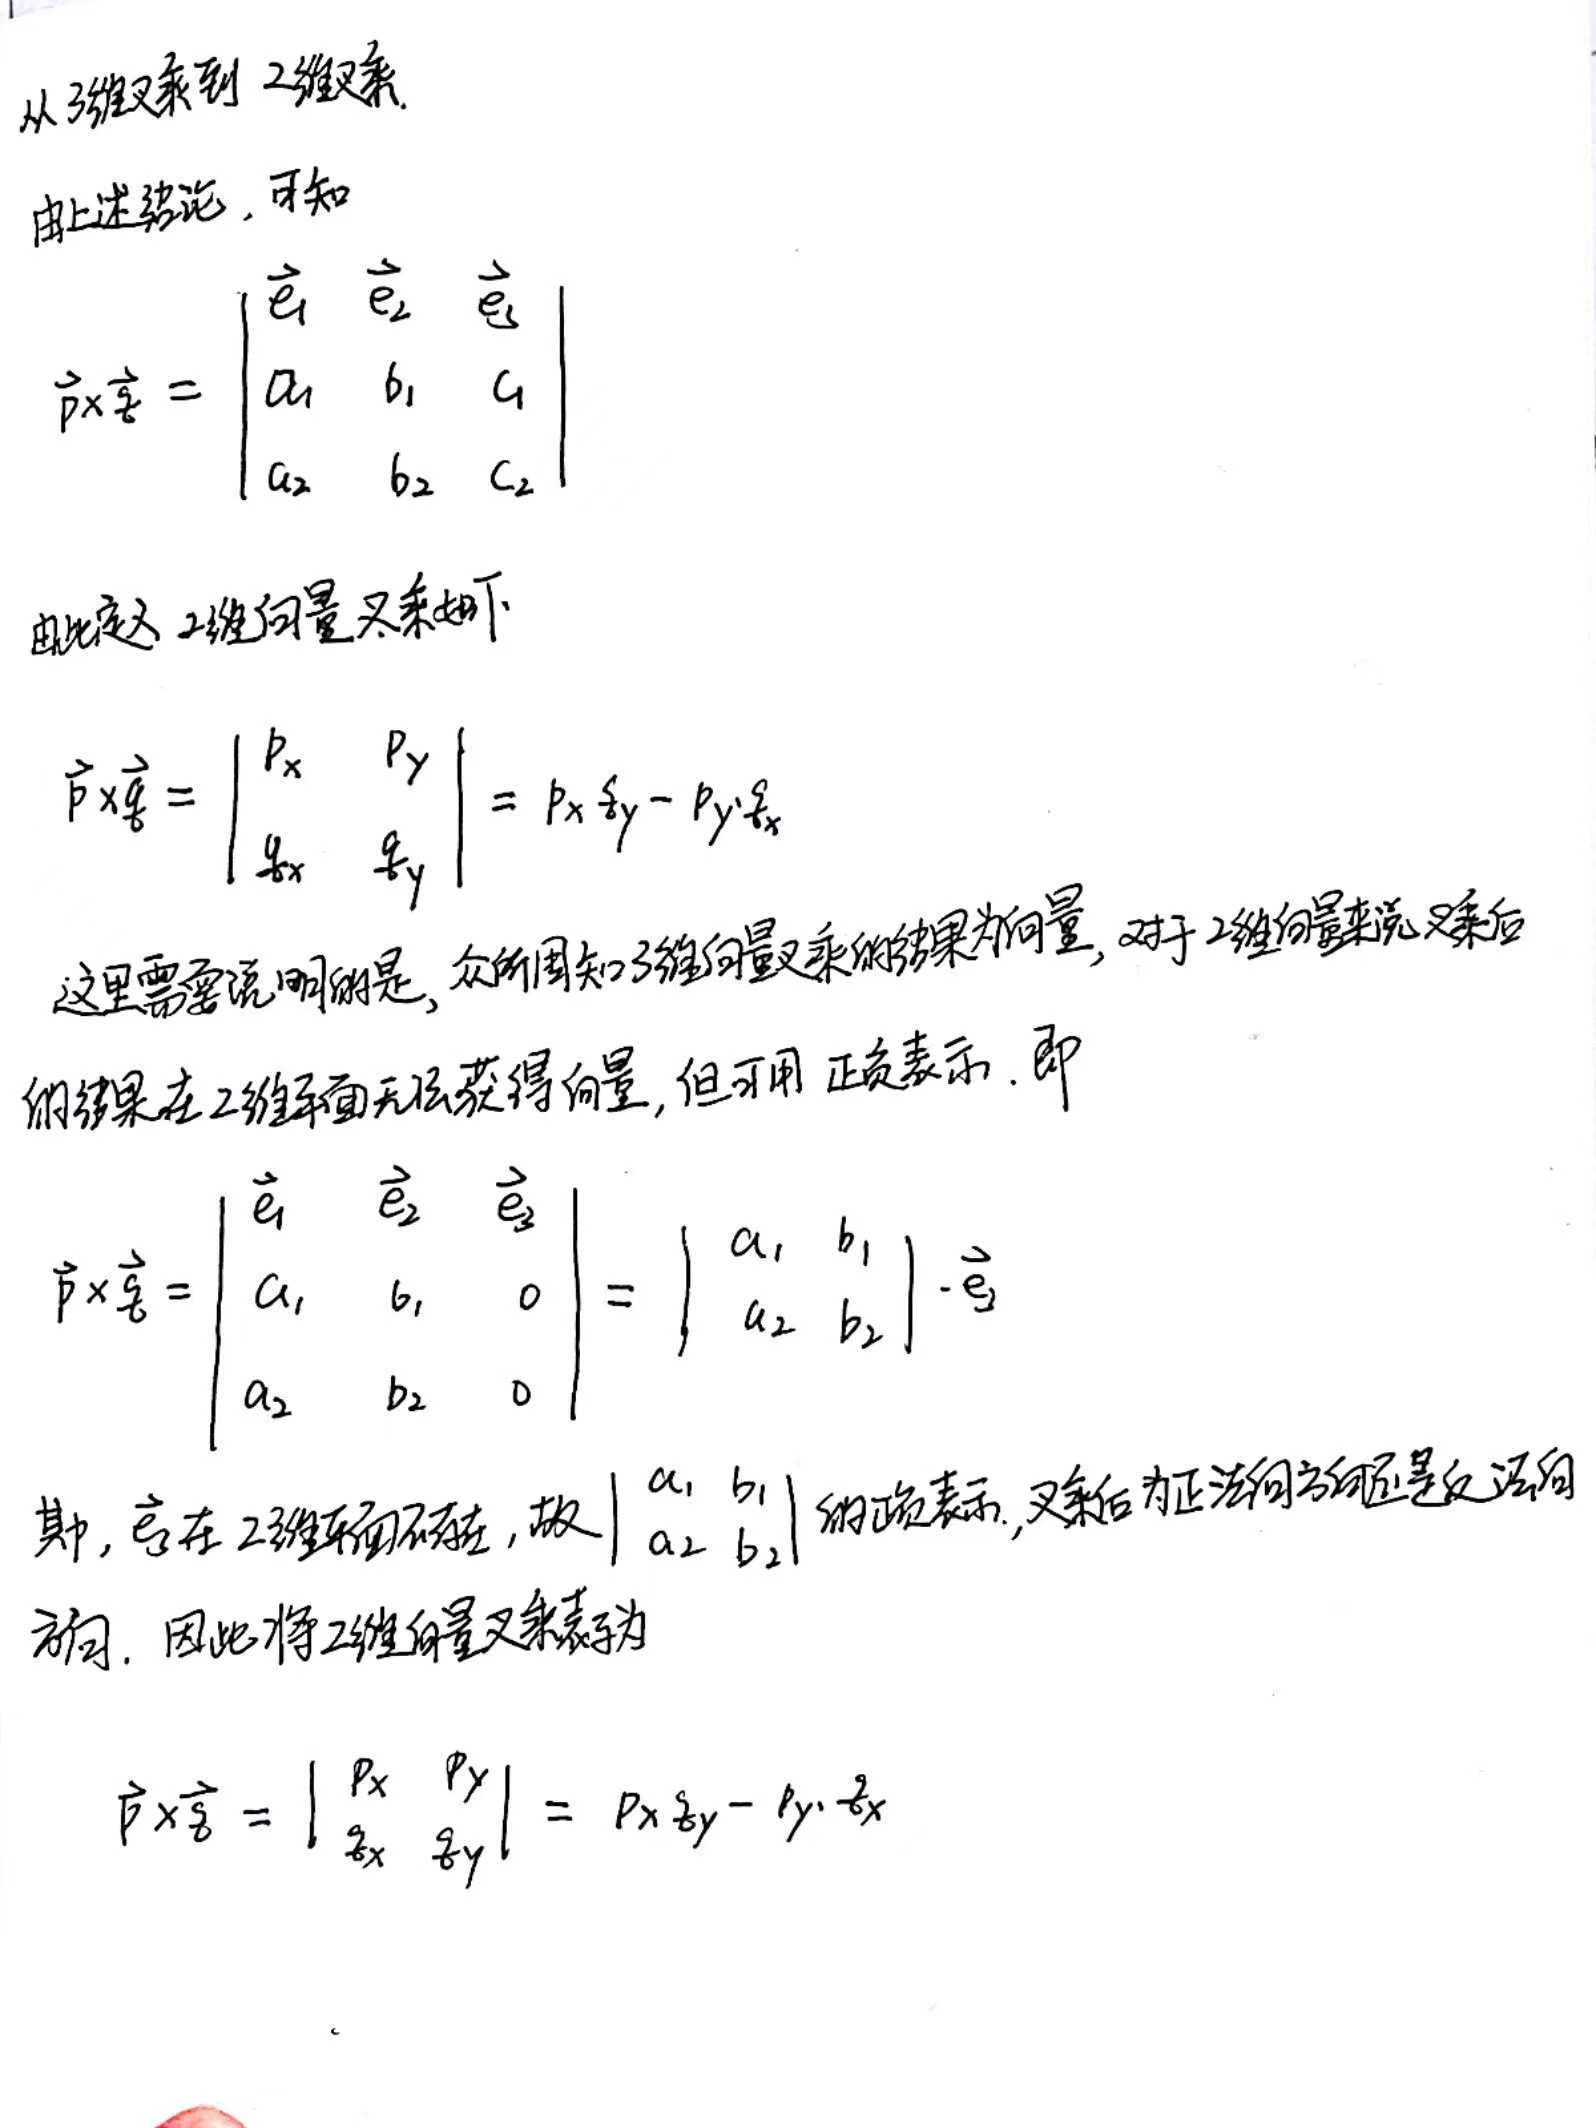 从3维叉乘到 2维叉乘.
由上述结论, 可知
p⃗×q⃗ = | e⃗₁ e⃗₂ e⃗₃ |
| a₁ b₁ c₁ |
| a₂ b₂ c₂ |
由此定义 2维向量叉乘如下.
p⃗×q⃗ = | pₓ p_y | = pₓ q_y - p_y·qₓ
| qₓ q_y |
这里需要说明的是, 众所周知3维向量叉乘的结果为向量, 对于2维向量来说叉乘后
的结果在2维平面无法获得向量, 但可用 正负表示. 即
p⃗×q⃗ = | e⃗₁ e⃗₂ e⃗₃ | = | a₁ b₁ | · e⃗₃
| a₁ b₁ 0 | | a₂ b₂ |
| a₂ b₂ 0 |
其中, e⃗₃在2维平面不存在, 故 | a₁ b₁ | 的正负表示, 叉乘后为正法向方向还是反法向
| a₂ b₂ |
方向. 因此将2维向量叉乘表示为
p⃗×q⃗ = | pₓ p_y | = pₓ q_y - p_y·qₓ
| qₓ q_y |